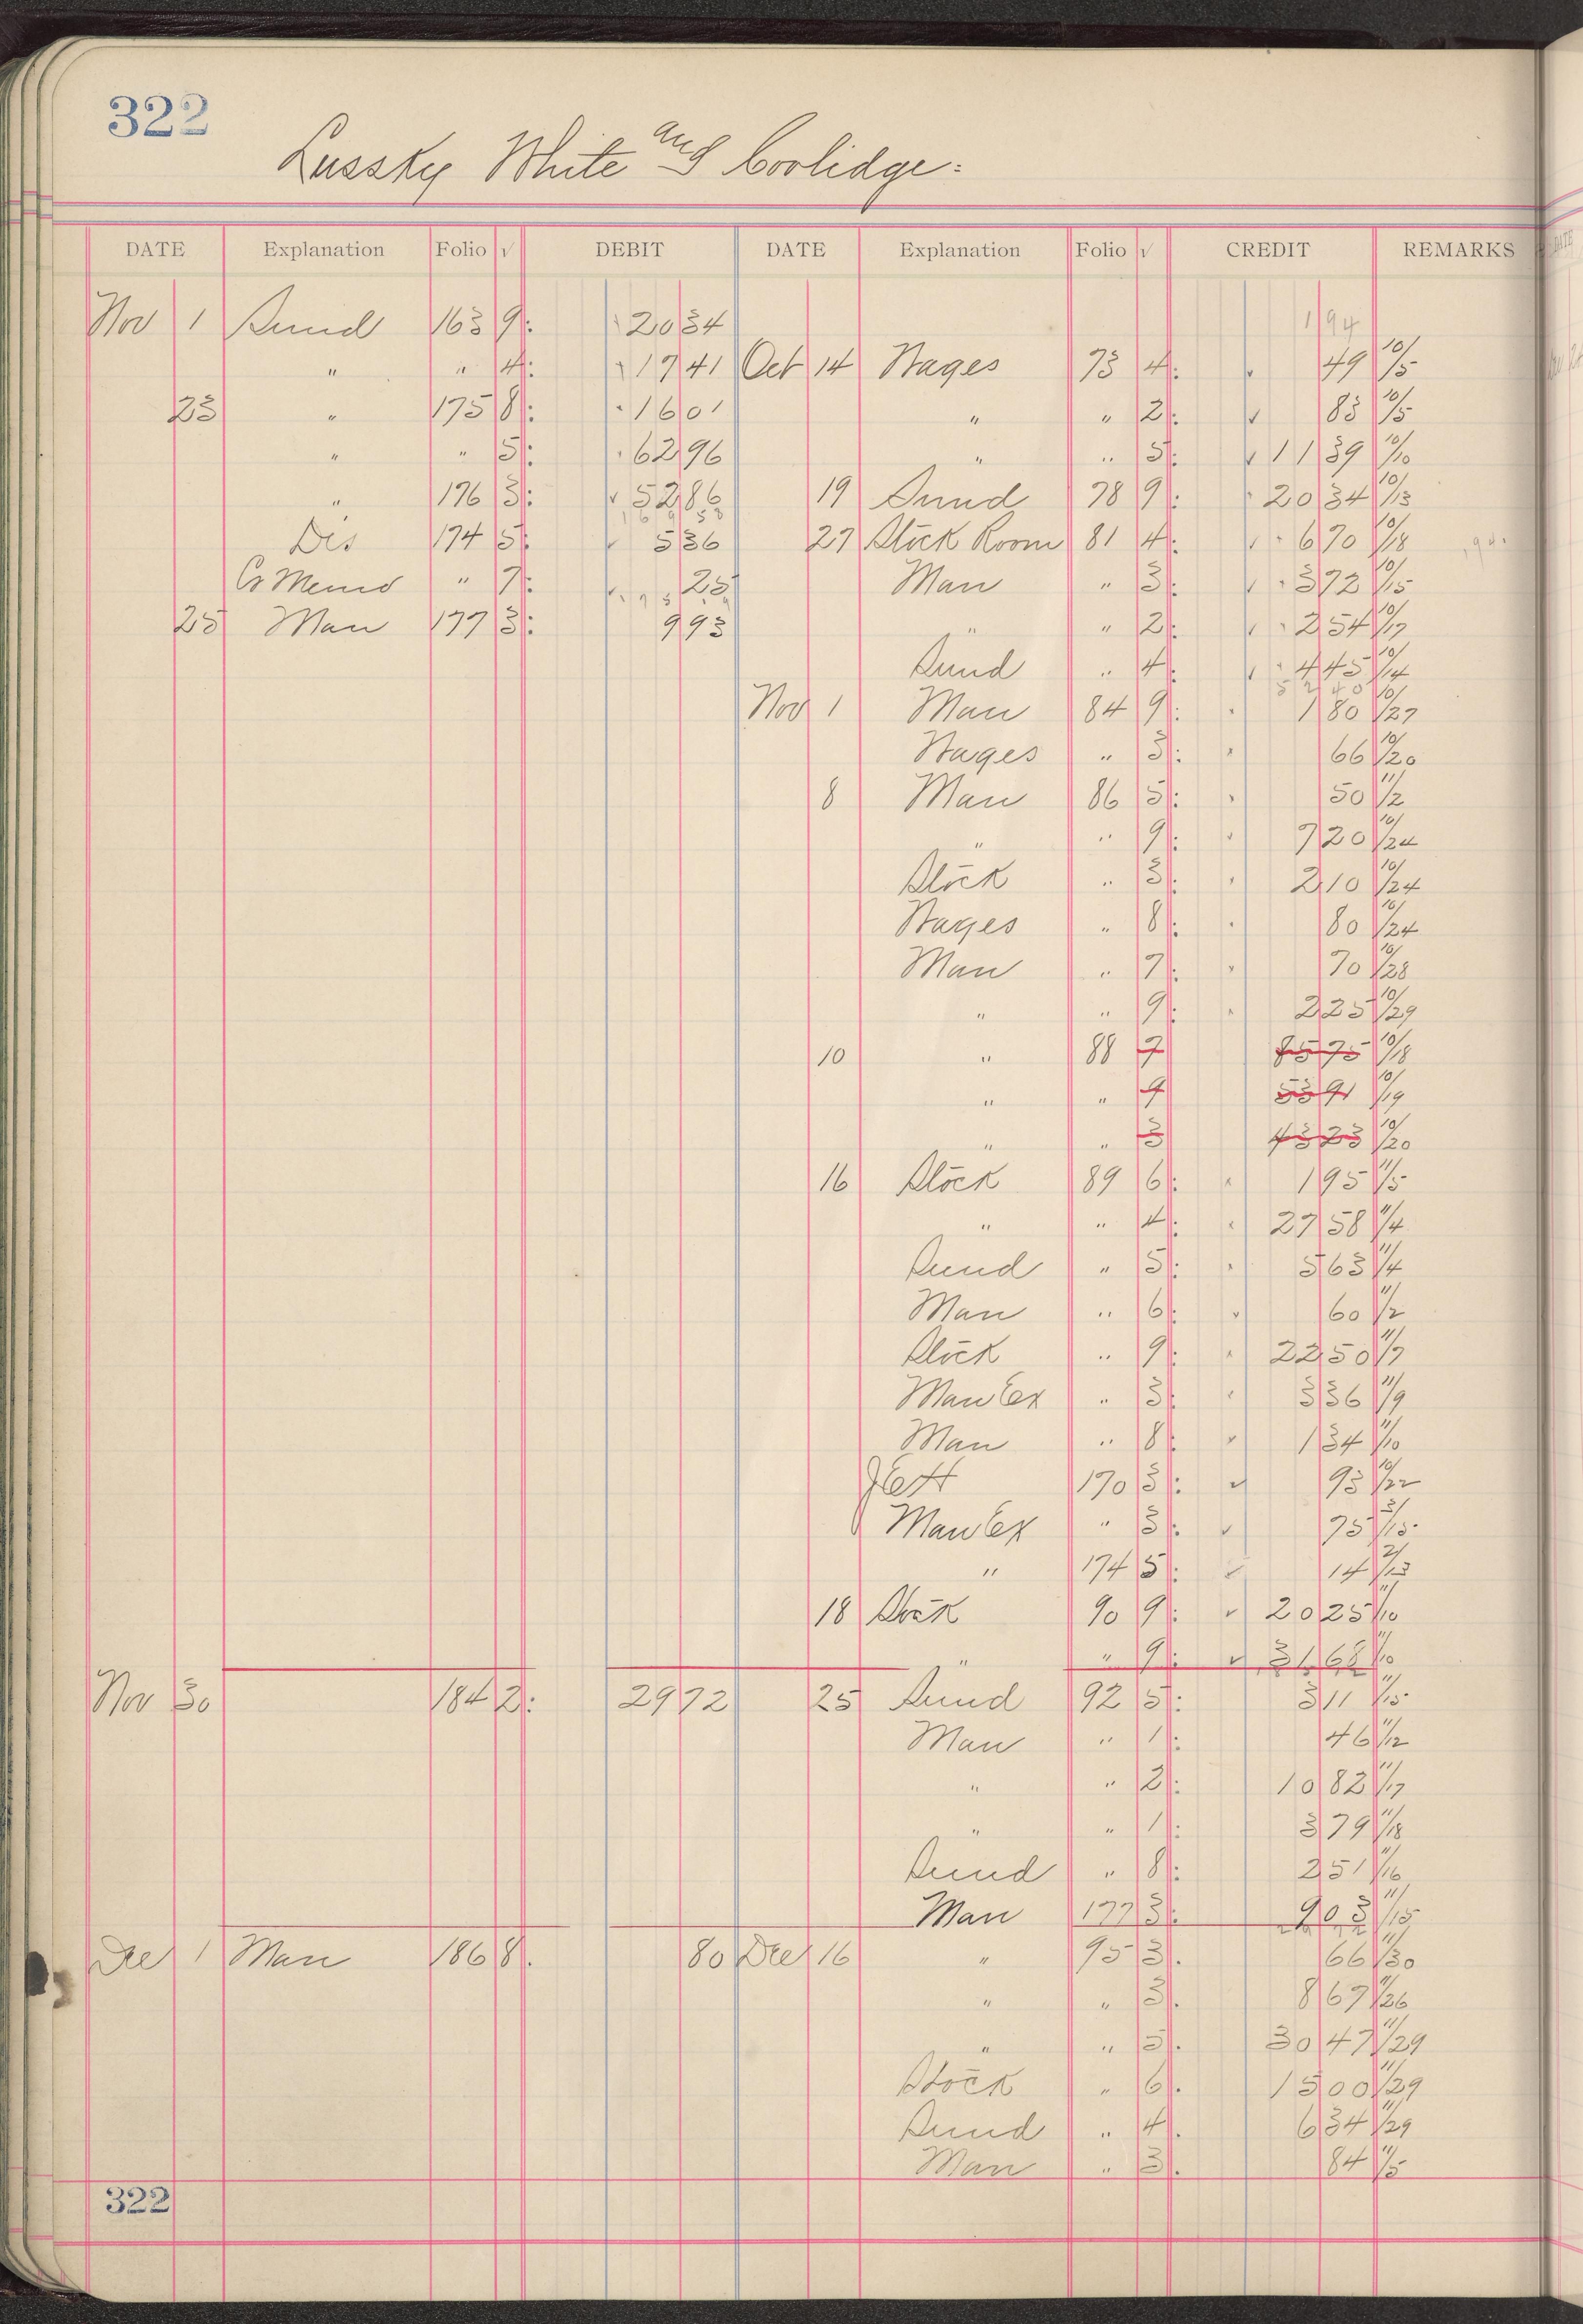 322
Lussky White and Coolidge:
DATE Explanation Folio √ DEBIT DATE Explanation Folio √ CREDIT REMARKS
Nov 1 Sund 163 9: 20 34 1 94
" " 4: 17 41 Oct 14 Wages 73 4: 49 10/5
23 " 175 8: 16 01 " " 2: 83 10/5
" " 5: 62 96 " " 5: 11 39 10/10
" 176 3: 52 86 19 Sund 78 9: 20 34 10/13
Dis 174 5: 5 36 27 Stock Room 81 4: 6 70 10/18
Cr Memo " 7: 25 Man " 3: 3 72 10/15
25 Man 177 3: 9 93 " " 2: 2 54 10/17
Sund " 4: 4 45 10/14
52 40
Nov 1 Man 84 9: 1 80 10/27
Wages " 3: 66 10/20
8 Man 86 5: 50 11/2
" " 9: 7 20 10/24
Stock " 3: 2 10 10/24
Wages " 8: 80 10/24
Man " 7: 70 10/28
" " 9: 2 25 10/29
10 " 88 7 85 75 10/18
" " 9 53 91 10/19
" " 3 43 23 10/20
16 Stock 89 6: 1 95 11/5
" " 4: 27 58 11/4
Sund " 5: 5 63 11/4
Man " 6: 60 11/2
Stock " 9: 22 50 11/7
Man Ex " 3: 3 36 11/9
Man " 8: 1 34 11/10
170 3: 93 10/22
Man Ex " 3: 75 3/15
" 174 5: 14 2/13
18 Stock 90 9: 20 25 11/10
" " 9: 31 68 11/10
Nov 30 184 2: 29 72 25 Sund 92 5: 3 11 11/15
Man " 1: 46 11/12
" " 2: 10 82 11/17
" " 1: 3 79 11/18
Sund " 8: 2 51 11/16
Man 177 3: 9 03 11/15
Dec 1 Man 186 8. 80 Dec 16 " 95 3. 66 11/30
" " 3. 8 67 11/26
" " 5. 30 47 11/29
Stock " 6. 15 00 11/29
Sund " 4. 6 34 11/29
Man " 3. 84 11/5
322